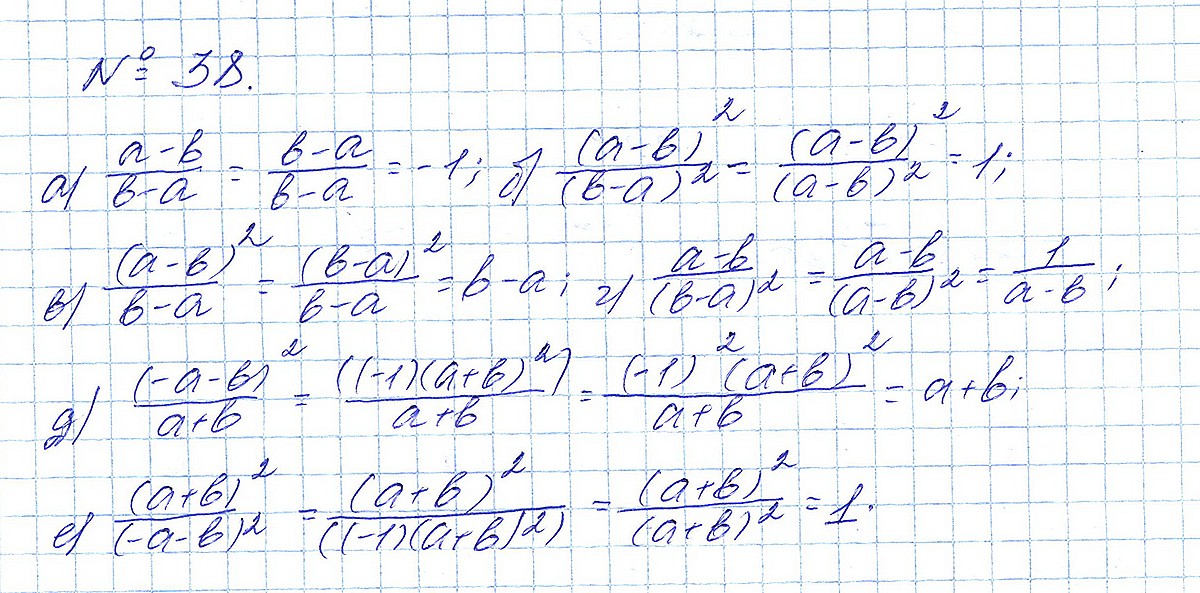 № 38.
а) (a-b)/(b-a) = (b-a)/(b-a) = -1; б) (a-b)²/(b-a)² = (a-b)²/(a-b)² = 1;
в) (a-b)²/(b-a) = (b-a)²/(b-a) = b-a; г) (a-b)/(b-a)² = (a-b)/(a-b)² = 1/(a-b);
д) (-a-b)²/(a+b) = ((-1)(a+b)²)/(a+b) = (-1)²(a+b)²/(a+b) = a+b;
е) (a+b)²/(-a-b)² = (a+b)²/((-1)(a+b)²) = (a+b)²/(a+b)² = 1.